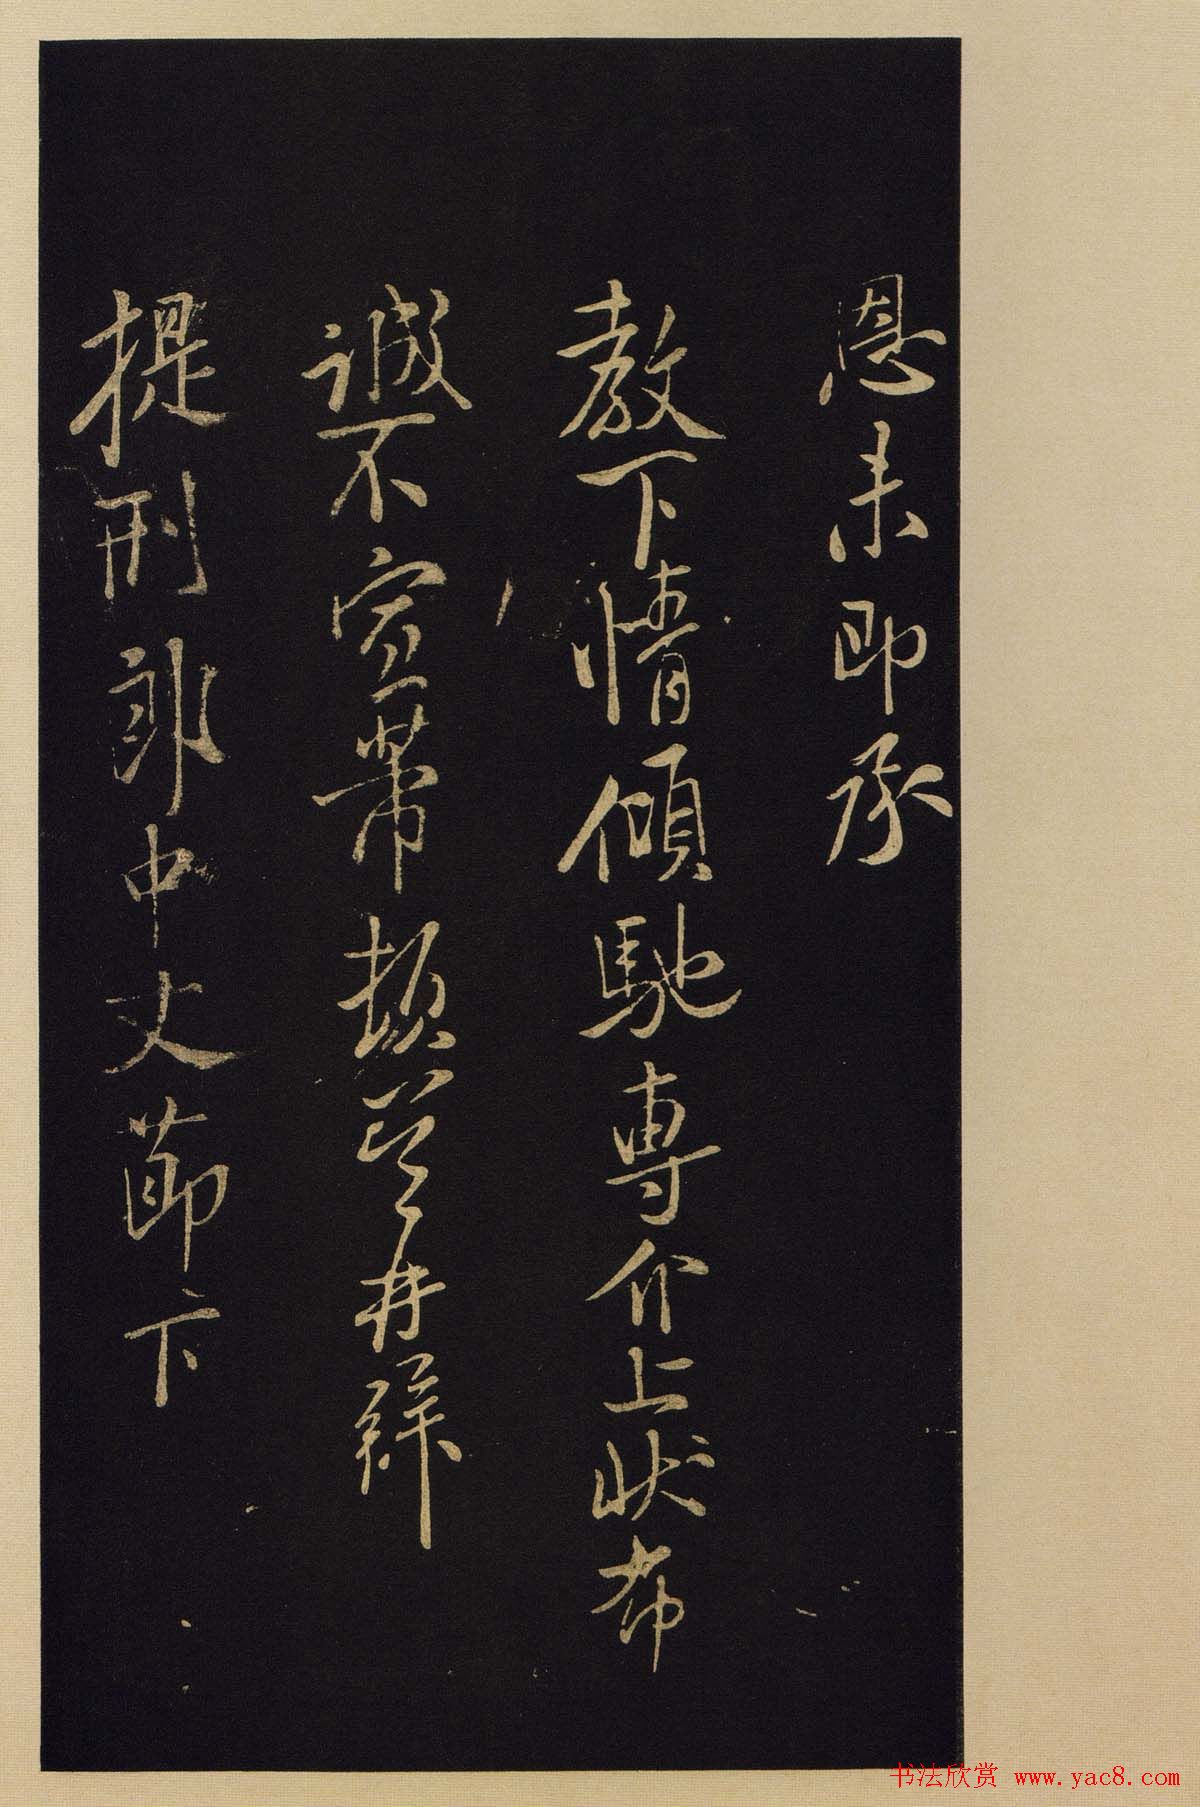 恩未即承
教下情傾馳専介上狀布
誠不宣芾頓首再拜
提刑郎中丈節下
书法欣赏 www.yac8.com